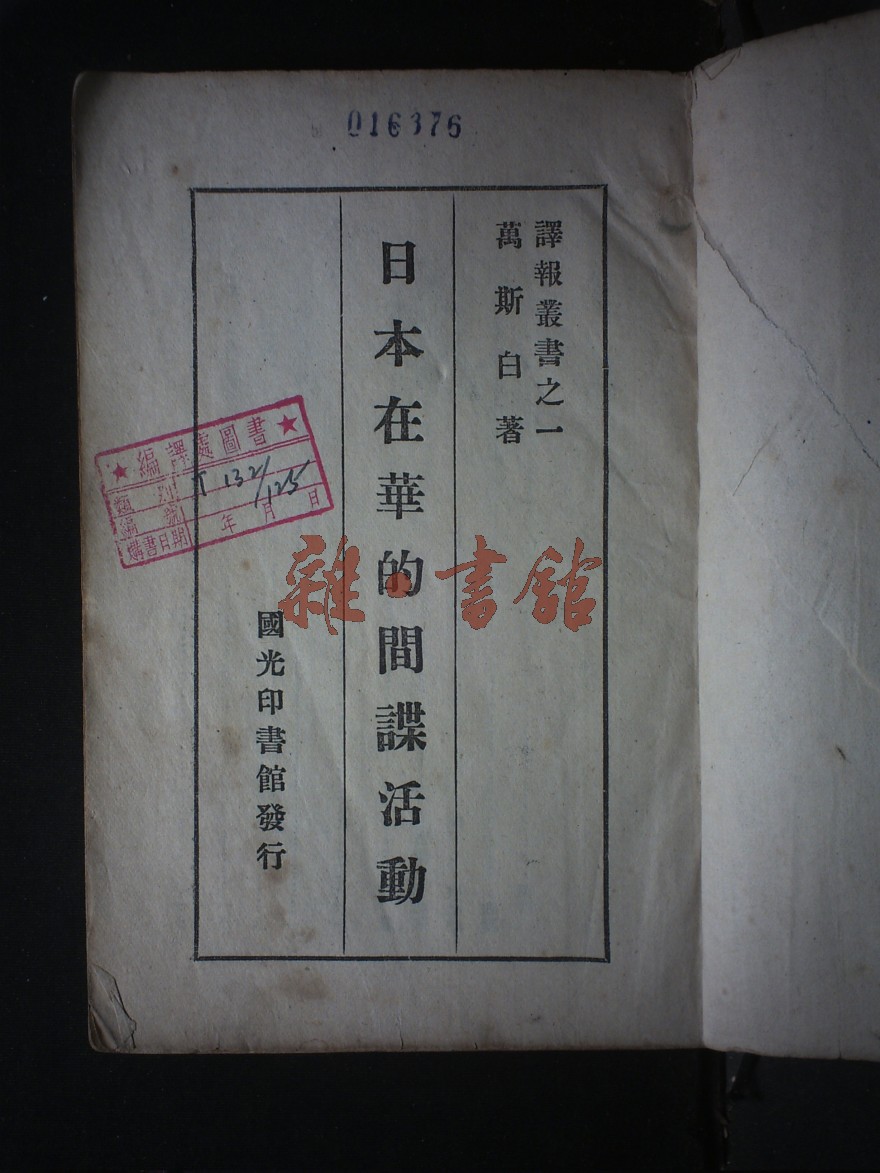 016376
譯報叢書之一
萬斯白著
日本在華的間諜活動
國光印書館發行
★編譯處圖書★
類別 T 132/125
編號
購書日期 年 月 日
雜·書館